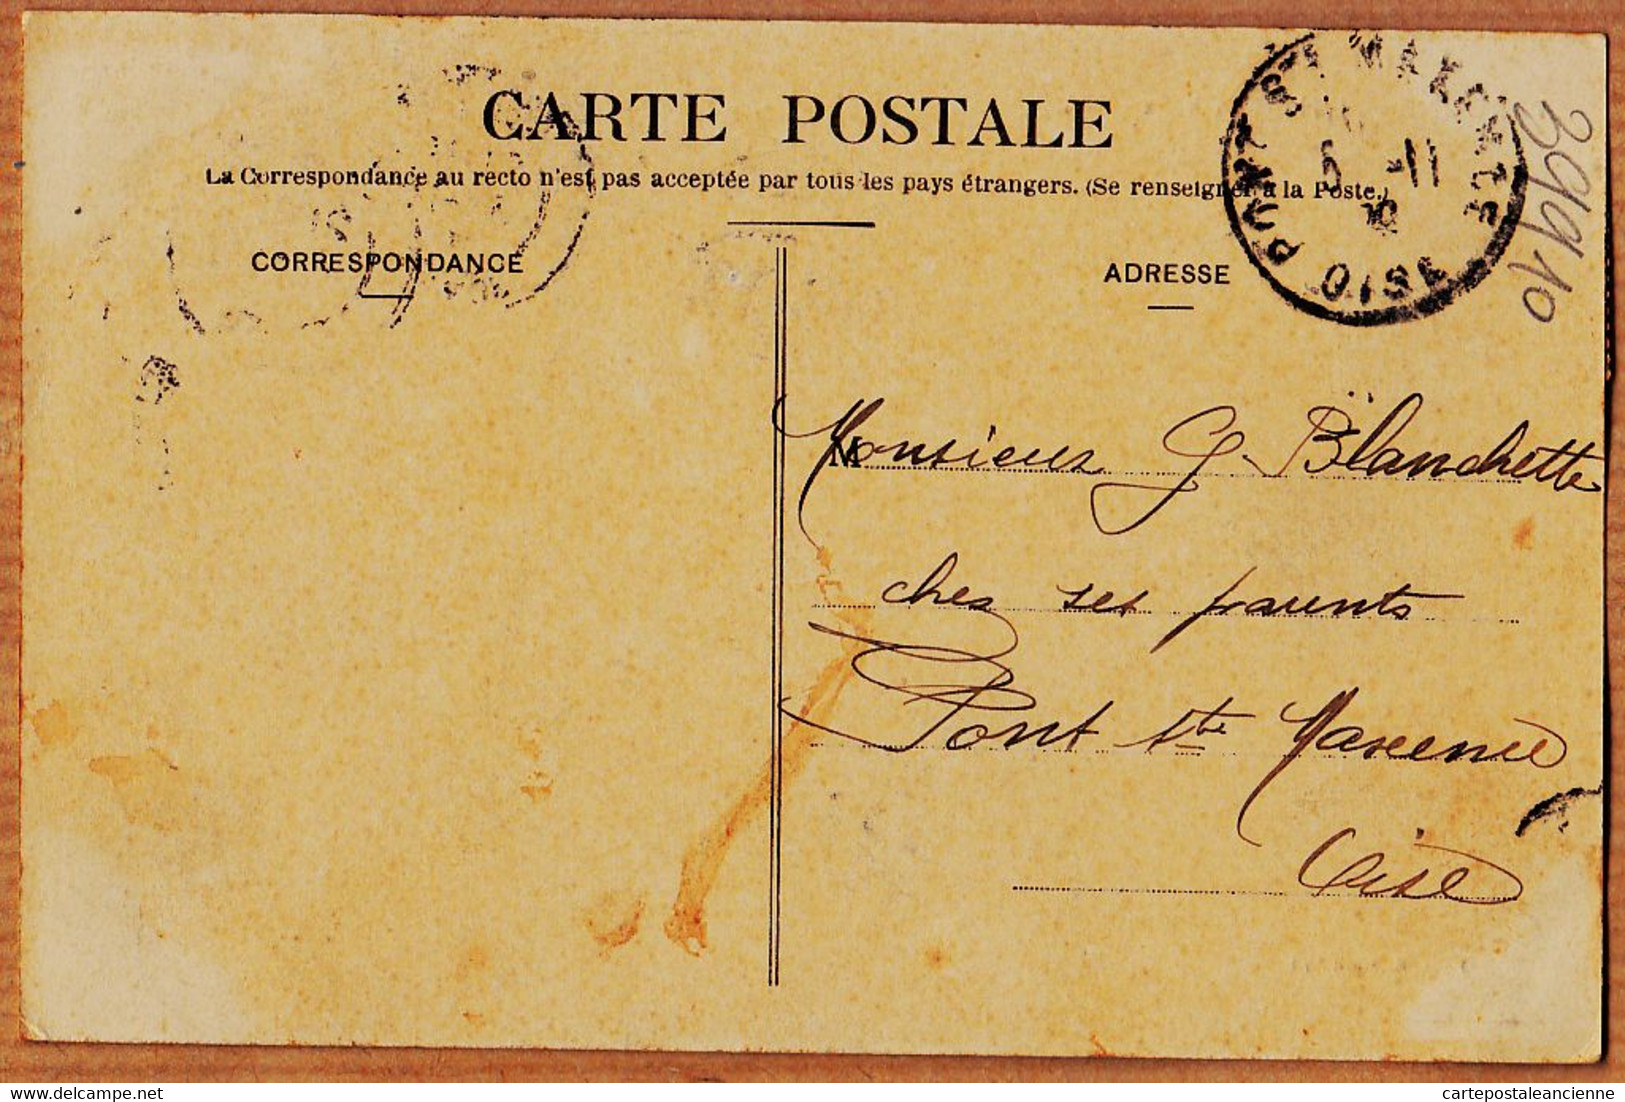 CARTE POSTALE
La Correspondance au recto n'est pas acceptée par tous les pays étrangers. (Se renseigner à la Poste.)
CORRESPONDANCE
ADRESSE
PONT STE MAXENCE
5 -11
OISE
M
Monsieur G. Blanchette
chez ses parents
Pont Ste Maxence
Oise
cartepostaleancienne.com